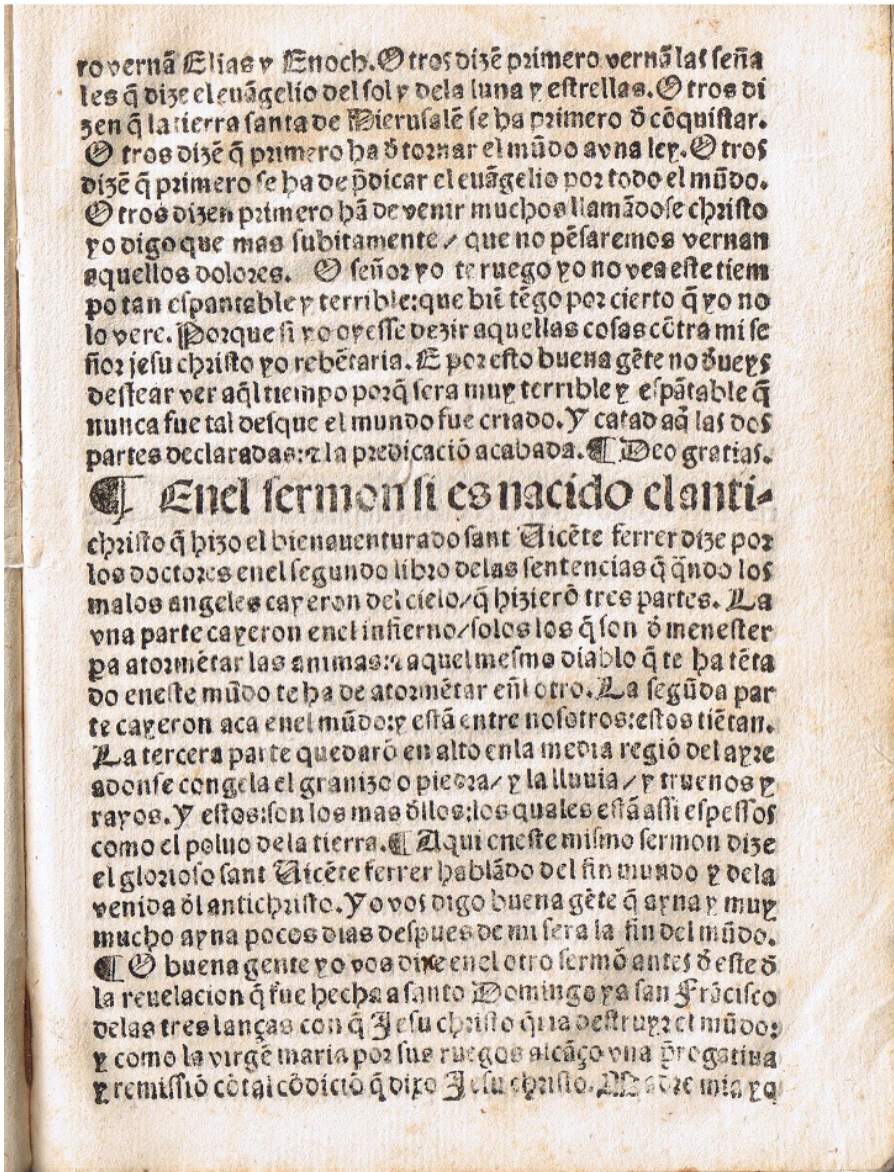 ro vernã Elias y Enoch. Otros dizẽ primero vernã las seña
les q̃ dize el euãgelio del sol y dela luna y estrellas. Otros di
zen q̃ la tierra santa de Hierusalẽ se ha primero õ cõquistar.
Otros dizẽ q̃ primero ha õ tornar el mũdo a vna ley. Otros
dizẽ q̃ primero se ha de p̃dicar el euãgelio por todo el mũdo.
Otros dizen primero hã de venir muchos llamãdose christo
yo digo que mas subitamente / que no pẽsaremos vernan
aquellos dolores. O señor yo te ruego yo no vea este tiem
po tan espantable y terrible: que biẽ tẽgo por cierto q̃ yo no
lo vere. Porque si yo oyesse dezir aquellas cosas cõtra mi se
ñor jesu christo yo rebẽtaria. E por esto buena gẽte no õueys
dessear ver aq̃l tiempo porq̃ sera muy terrible y espãtable q̃
nunca fue tal desque el mundo fue criado. Y catad aq̃ las dos
partes declaradas: ⁊ la predicaciõ acabada. ¶ Deo gratias.
¶ Enel sermon si es nacido el anti-
christo q̃ hizo el bienauenturado sant Uicẽte ferrer dize por
los doctores enel segundo libro delas sentencias q̃ q̃ndo los
malos angeles cayeron del cielo / q̃ hizierõ tres partes. La
vna parte cayeron enel infierno / solos los q̃ son õ menester
pa atormẽtar las animas: ⁊ aquel mesmo diablo q̃ te ha tẽta
do eneste mũdo te ha de atormẽtar eñl otro. La segũda par
te cayeron aca enel mũdo: y estã entre nosotros: estos tiẽtan.
La tercera parte quedarõ en alto enla media regiõ del ayre
adonse congela el granizo o piedra / y la lluuia / y truenos y
rayos. Y estos: son los mas õllos: los quales estã assi espessos
como el poluo dela tierra. ¶ Aqui eneste mismo sermon dize
el glorioso sant Uicẽte ferrer hablãdo del fin mundo y dela
venida õl antichristo. Yo vos digo buena gẽte q̃ ayna y muy
mucho ayna pocos dias despues de mi sera la fin del mũdo.
¶ O buena gente yo vos dixe enel otro sermõ antes õ este õ
la reuelacion q̃ fue hecha a santo Domingo y a san Frãcisco
delas tres lanças con q̃ Jesu christo q̃ria destruyr el mũdo:
y como la virgẽ maria por sus ruegos alcãço vna p̃rogatiua
y remissiõ cõ tal cõdiciõ q̃ dixo Jesu christo. Madre mia yo